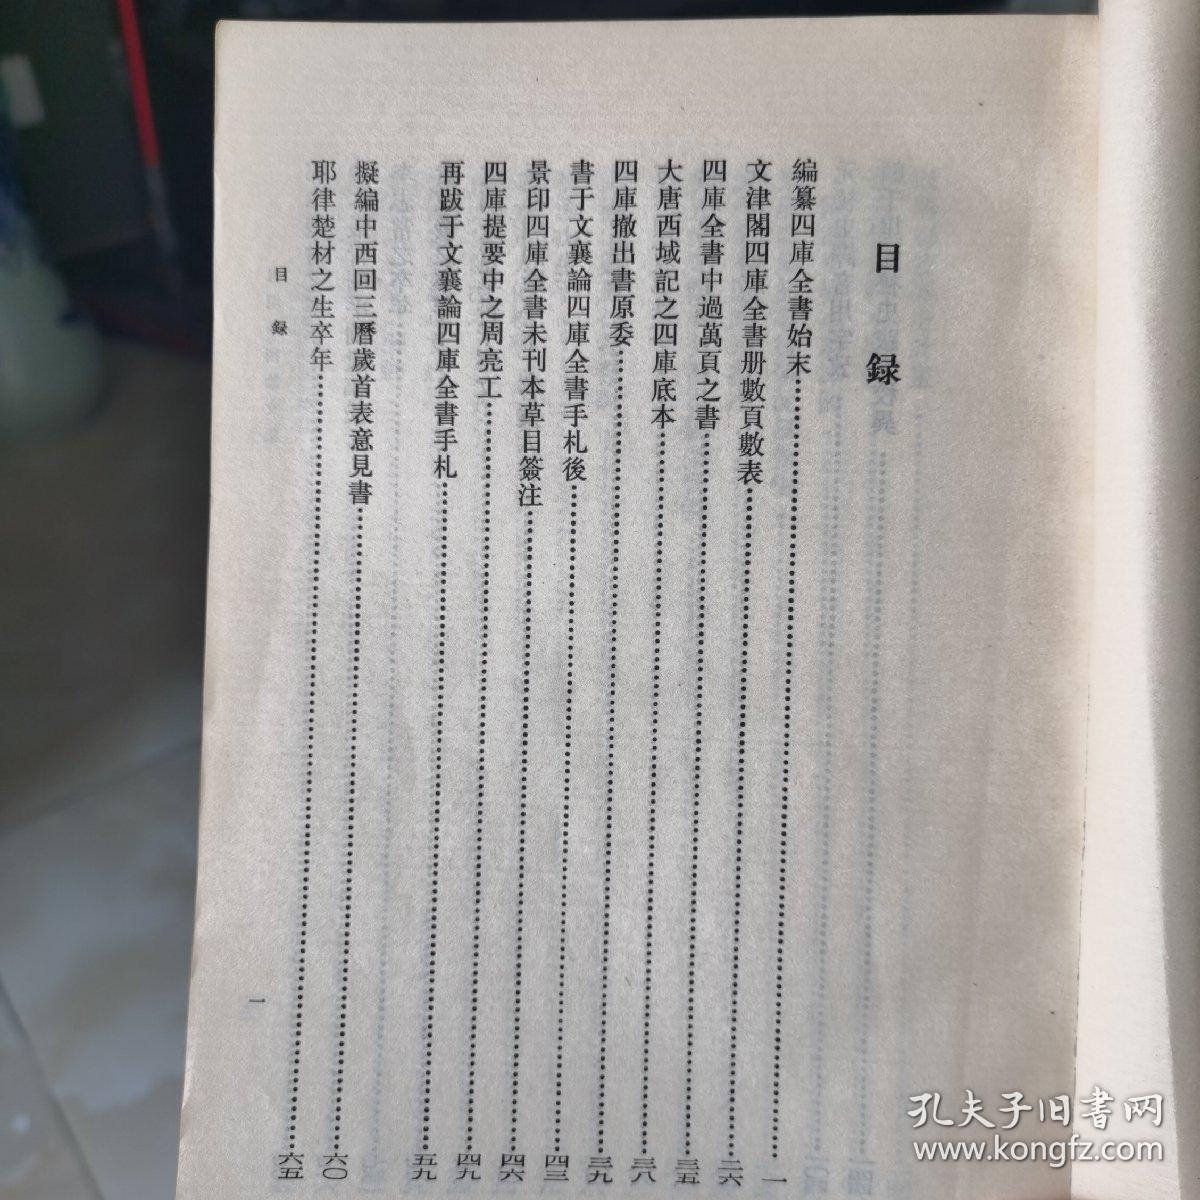 目録
編纂四庫全書始末……一
文津閣四庫全書册數頁數表……二六
四庫全書中過萬頁之書……三五
大唐西域記之四庫底本……三八
四庫撤出書原委……三九
書于文襄論四庫全書手札後……四三
景印四庫全書未刊本草目簽注……四六
四庫提要中之周亮工……四九
再跋于文襄論四庫全書手札……五九
擬編中西回三曆歲首表意見書……六〇
耶律楚材之生卒年……六五
目録
一
孔夫子旧書网
www.kongfz.com